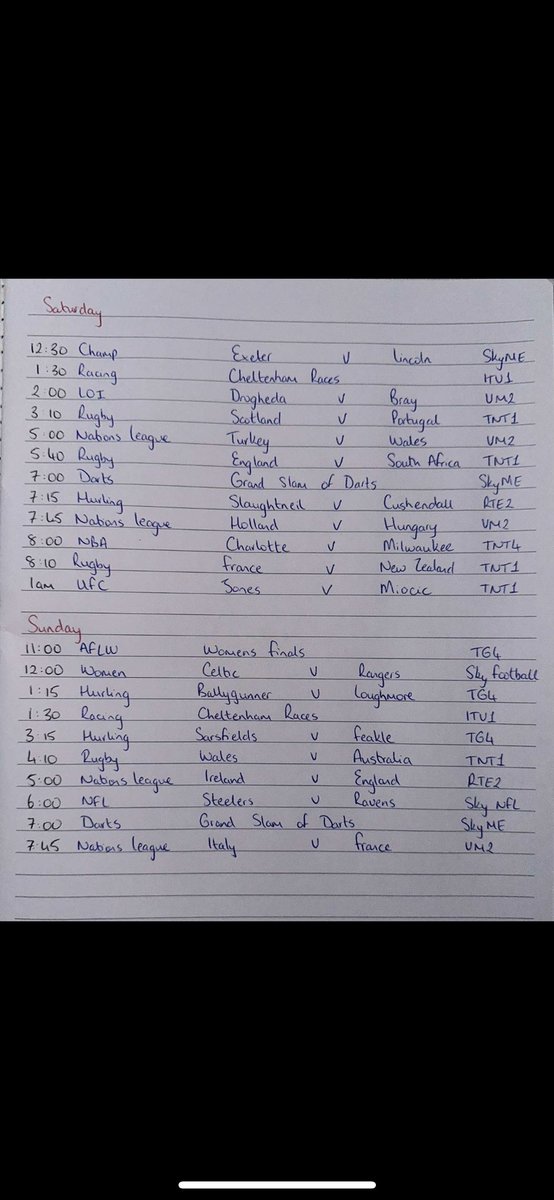 Saturday
12:30 Champ Exeter v Lincoln SkyME
1:30 Racing Cheltenham Races ITV1
2:00 LOI Drogheda v Bray VM2
3:10 Rugby Scotland v Portugal TNT1
5:00 Nations league Turkey v Wales VM2
5:40 Rugby England v South Africa TNT1
7:00 Darts Grand Slam of Darts SkyME
7:15 Hurling Slaughtneil v Cushendall RTE2
7:45 Nations league Holland v Hungary VM2
8:00 NBA Charlotte v Milwaukee TNT4
8:10 Rugby france v New Zealand TNT1
1am UFC Jones v Miocic TNT1
Sunday
11:00 AFLW Womens finals TG4
12:00 Women Celtic v Rangers Sky football
1:15 Hurling Ballygunner v Loughmore TG4
1:30 Racing Cheltenham Races ITV1
3:15 Hurling Sarsfields v feakle TG4
4:10 Rugby Wales v Australia TNT1
5:00 Nations league Ireland v England RTE2
6:00 NFL Steelers v Ravens Sky NFL
7:00 Darts Grand Slam of Darts SkyME
7:45 Nations league Italy v france VM2